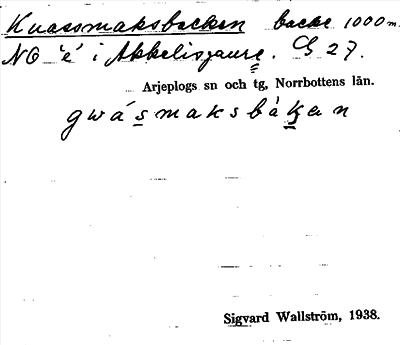 Kuossmaksbacken backe 1000 m.
NO 'e' i Akkelisjaure. G 27.
Arjeplogs sn och tg, Norrbottens län.
gwásmaksbàkan
Sigvard Wallström, 1938.